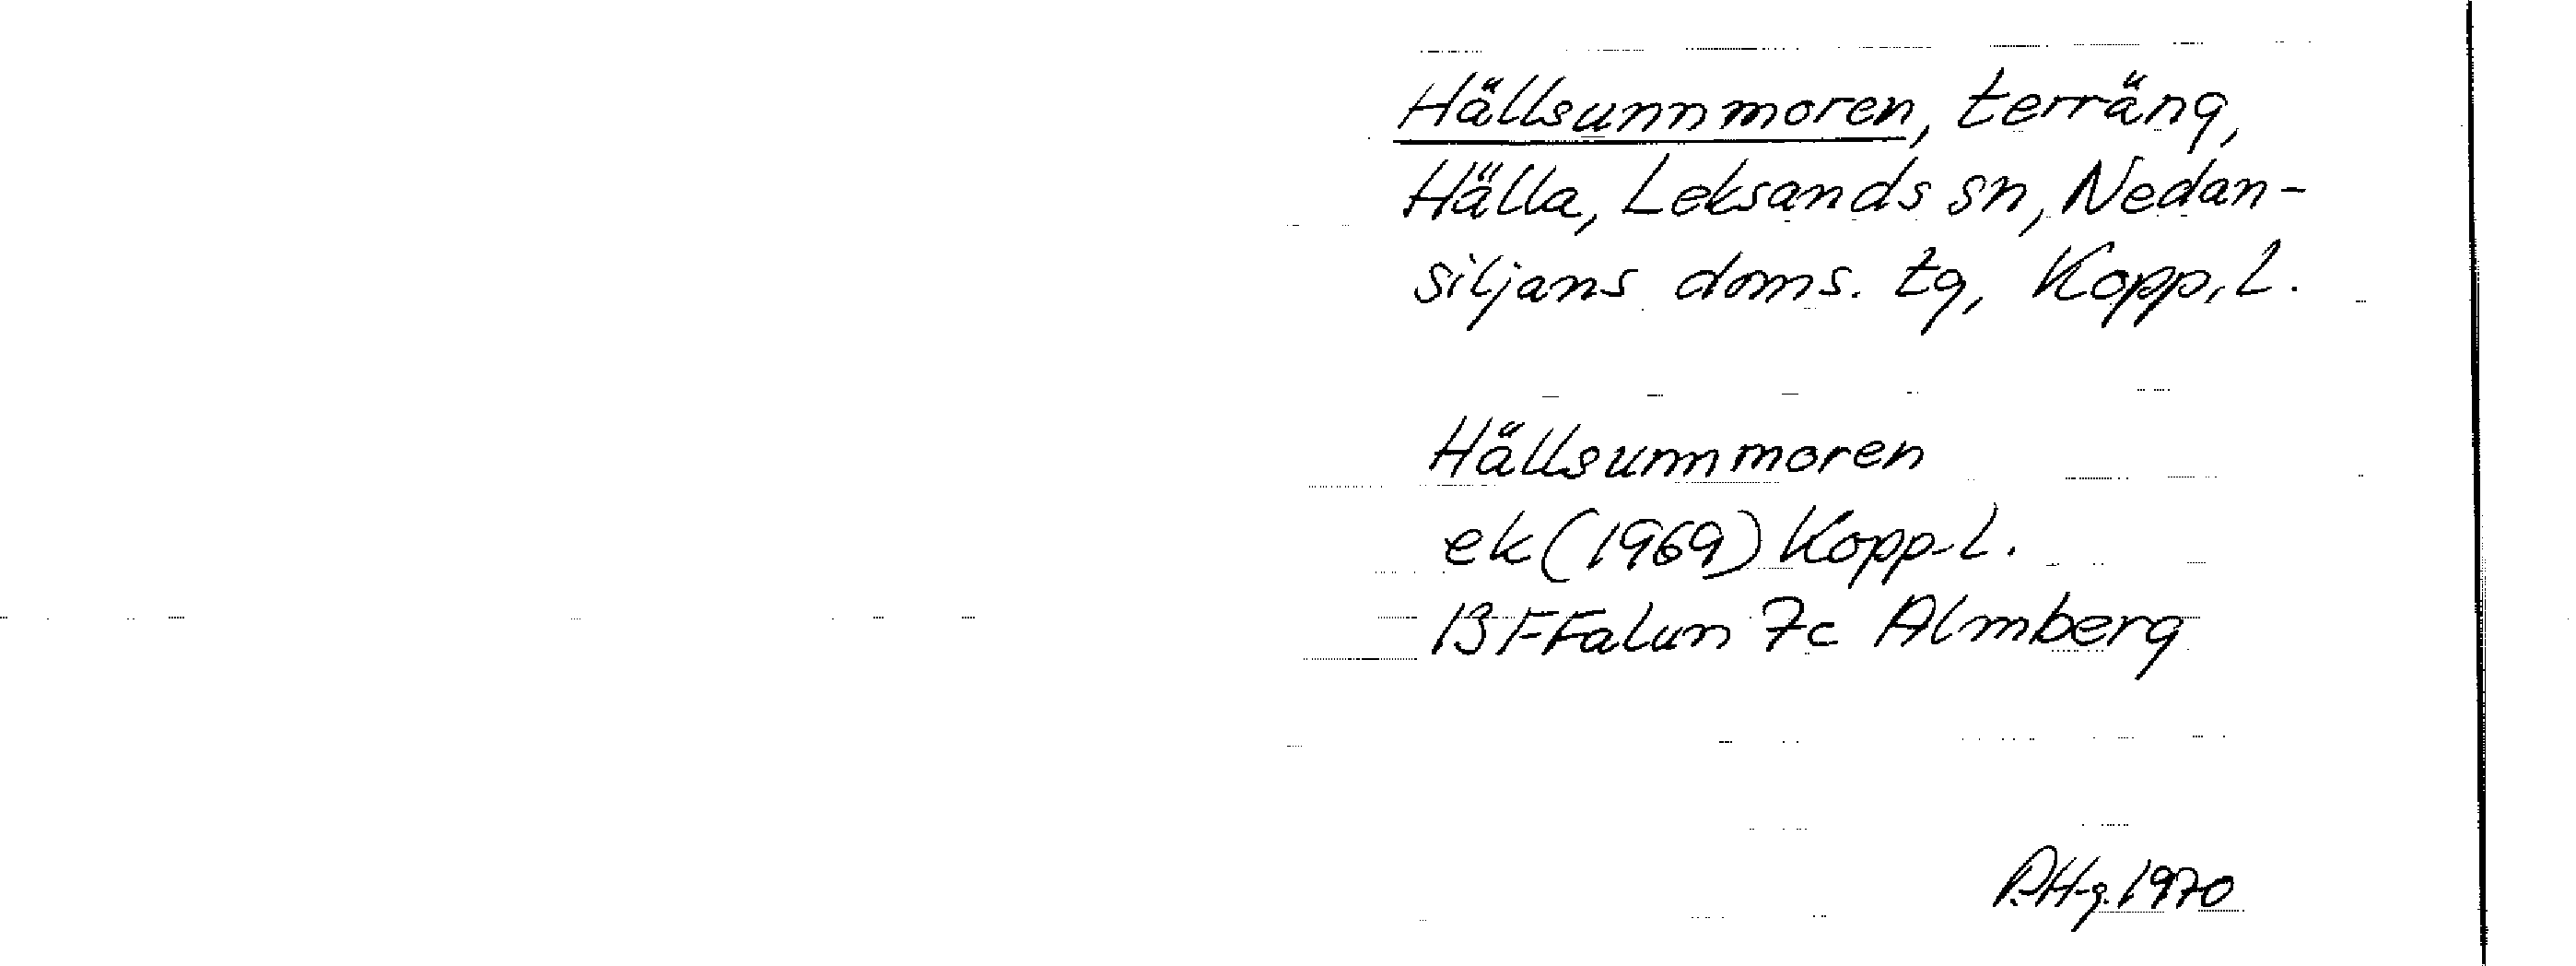 Hällsunnmoren, terräng,
Hälla, Leksands sn, Nedan-
siljans doms. tg, Kopp. l.
Hällsunnmoren
ek (1969) Kopp. l.
13 F Falun 7c Almberg
P.H-g. 1970